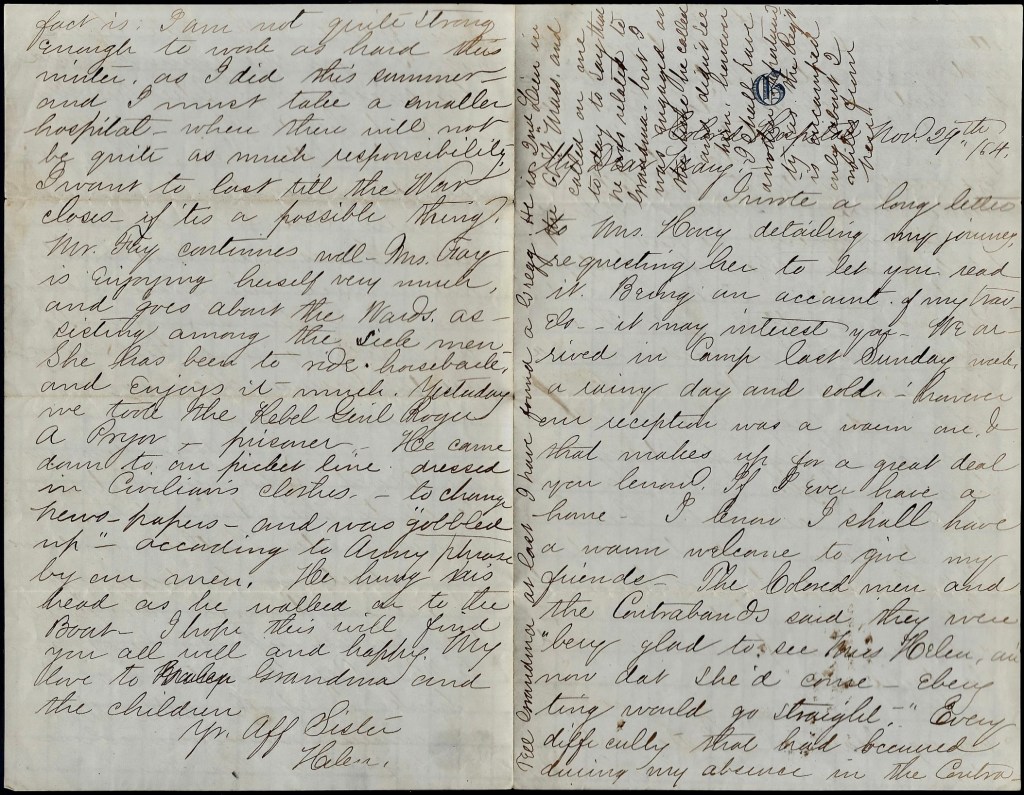 fact is: I am not quite strong
enough to work as hard this
winter, as I did this summer-
and I must take a smaller
hospital - where there will not
be quite as much responsibility
I want to last till the War
closes - if 'tis a possible thing.
Mr. Fay continues well - Mrs. Fay
is Enjoying herself very much,
and goes about the Wards, as-
sisting among the sick men -
She has been to ride horseback,
and Enjoys it much. Yestaday
we took the Rebel Genl Roger
A Pryor - prisoner - He came
down to our picket line dressed
in Civilian's clothes. - to change
news-papers - and was "gobbled
up" - according to Army phrase
by our men. He hung his
head as he walked on to the
Boat - I hope this will find
you all well and happy. My
love to Grandma and
the children
Yr. Aff Sister
Helen.
Tell Grandma at last I have found a Gregg. He was 2nd Lieu in
the 61st Mass. and
called on me
to day to say that
he was related to
Grandma but I
was engaged at
the time he called
and did not see
him, however
I shall have
another opportunity
by as the Reg't
is encamped
only about 2
miles from
here.
Colored Hospital Nov. 29th /64.
Mary.
I wrote a long letter
to Mrs. Hovey detailing my journey,
requesting her to let you read
it. Being an account of my trav-
els - it may interest you - We ar-
rived in Camp last Sunday week,
a rainy day and cold. - however
our reception was a warm one, &
that makes up for a great deal
you know. If I Ever have a
home - I know I shall have
a warm welcome to give my
friends - The Colored men and
the Contrabands said, they were
"bery glad to see Miss Helen, an'
now dat she'd come - Ebery
ting would go straight." Every
difficulty that had occurred
during my absence in the Contra-